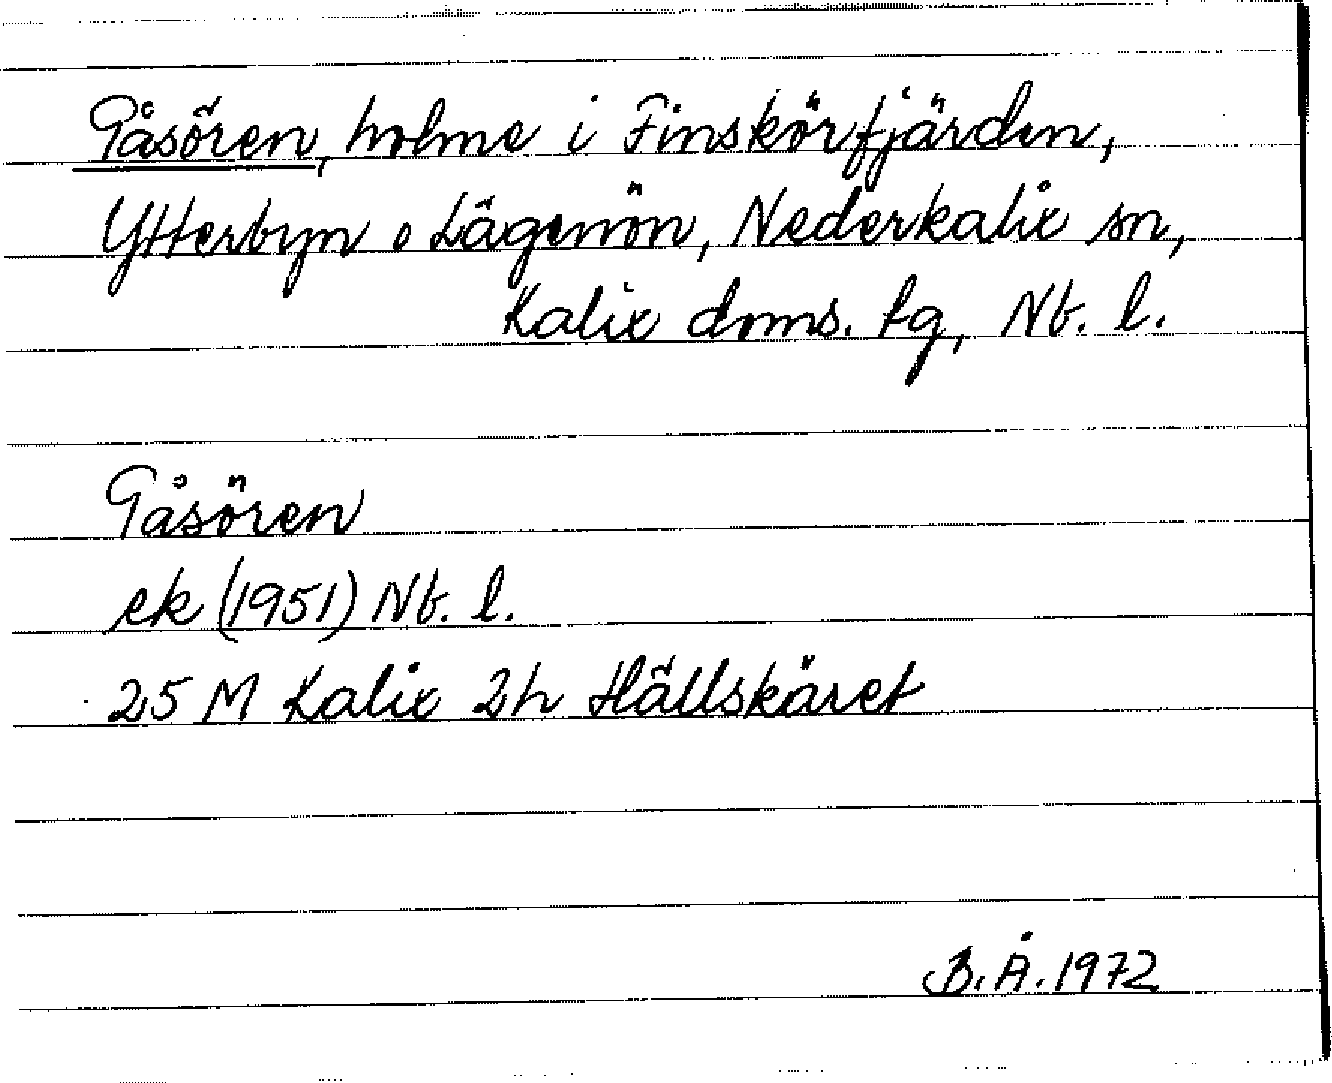 Gåsören, holme i Finskörfjärden,
Ytterbyn o Lägenön, Nederkalix sn,
Kalix doms. tg, Nb. l.
Gåsören
ek (1951) Nb. l.
25 M Kalix 2h Hällskäret
B.Å. 1972